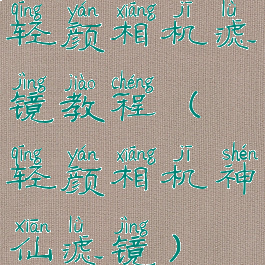 qīng yán xiāng jī lǜ
轻颜相机滤
jìng jiào chéng
镜教程（
qīng yán xiāng jī shén
轻颜相机神
xiān lǜ jìng
仙滤镜）